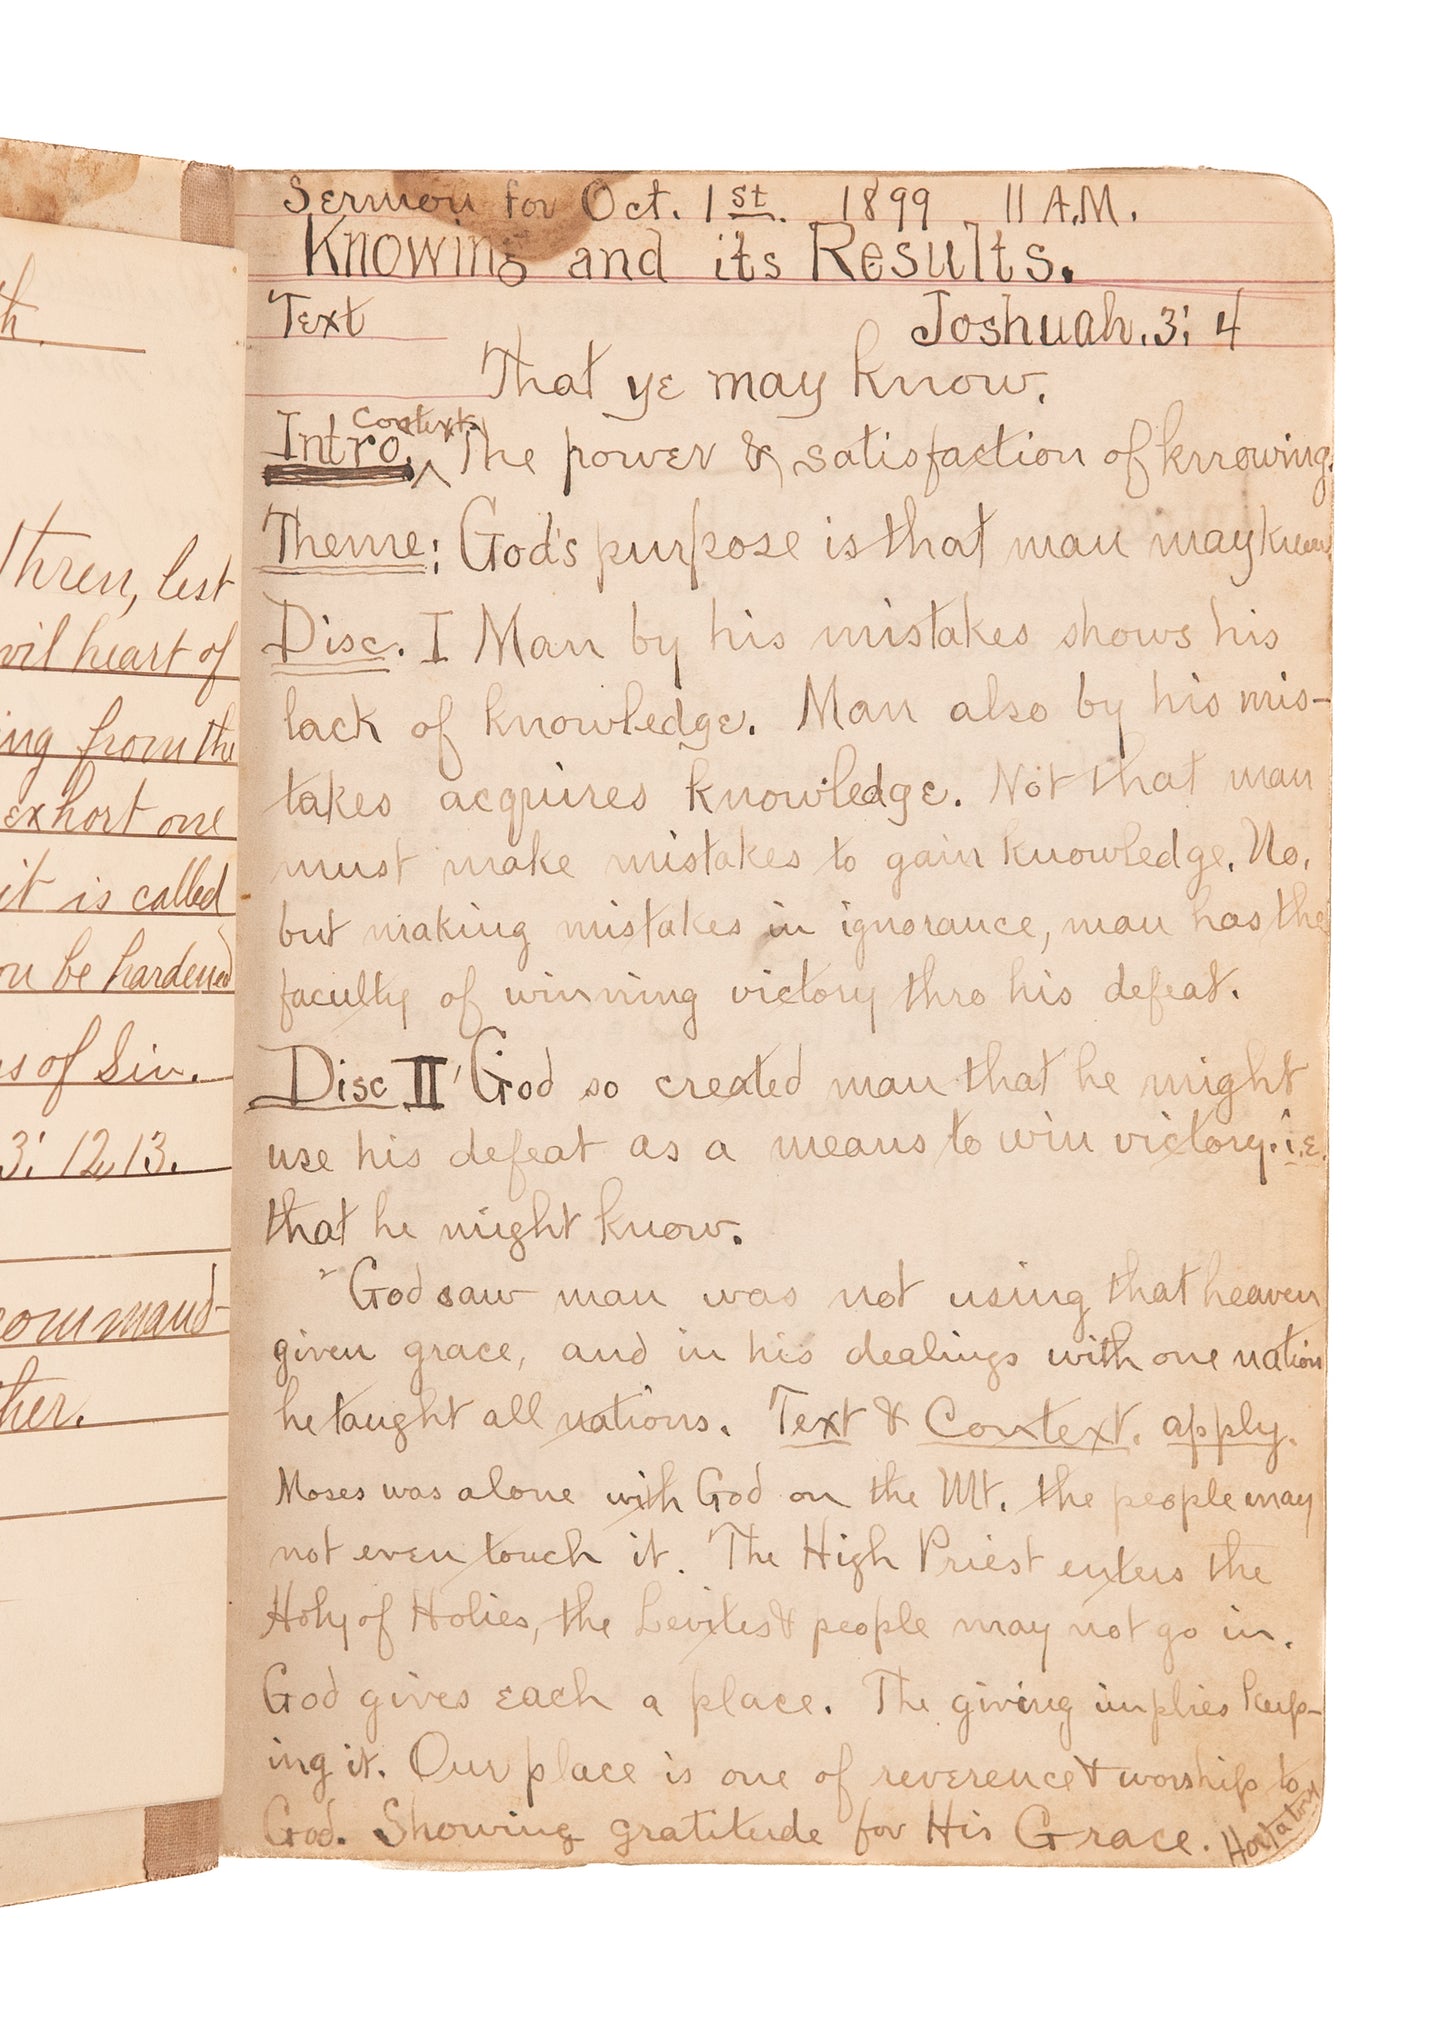 th.
thren, lest
vil heart of
ing from the
exhort one
it is called
ou be hardened
s of Sin.
3: 12, 13.
command-
ther.
Sermon for Oct. 1st. 1899 11 A.M.
Knowing and its Results.
Text Joshuah. 3: 4
That ye may know.
Context
Intro. ^ The power & satisfaction of knowing.
Theme: God's purpose is that man may know
Disc. I Man by his mistakes shows his
lack of knowledge. Man also by his mis-
takes acquires knowledge. Not that man
must make mistakes to gain knowledge. No,
but making mistakes in ignorance, man has the
faculty of winning victory thro his defeat.
Disc II God so created man that he might
use his defeat as a means to win victory. i.e.
that he might know.
God saw man was not using that heaven
given grace, and in his dealings with one nation
he taught all nations. Text & Context. apply.
Moses was alone with God on the Mt. the people may
not even touch it. The High Priest enters the
Holy of Holies, the Levites & people may not go in.
God gives each a place. The giving implies keep-
ing it. Our place is one of reverence & worship to
God. Showing gratitude for His Grace. Hortatory